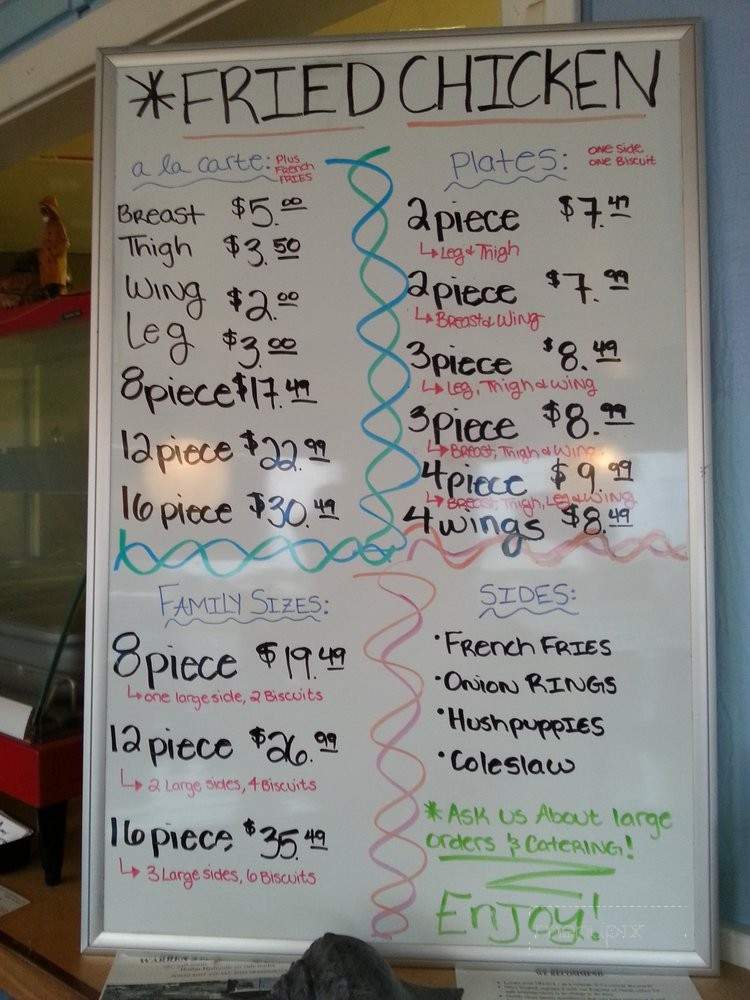 *FRIED CHICKEN
a la carte: Plus
French
FRIES
Breast $5.00
Thigh $3.50
Wing $2.00
Leg $3.00
8piece $17.49
12piece $22.99
16 piece $30.49
Plates: one side,
one Biscuit
2piece $7.47
Leg & Thigh
2piece $7.99
Breast & Wing
3piece $8.49
Leg, Thigh & Wing
3piece $8.99
Breast, Thigh & Wing
4piece $9.99
Breast, Thigh, Leg & Wing
4wings $8.49
FAMILY SIZES:
8piece $19.49
one large side, 2 Biscuits
12 piece $26.99
2 Large sides, 4 Biscuits
16 piece $35.49
3 Large sides, 6 Biscuits
SIDES:
·French FRIES
·Onion RINGS
·HushpuppIES
·Coleslaw
*Ask us About large
orders & Catering!
Enjoy!